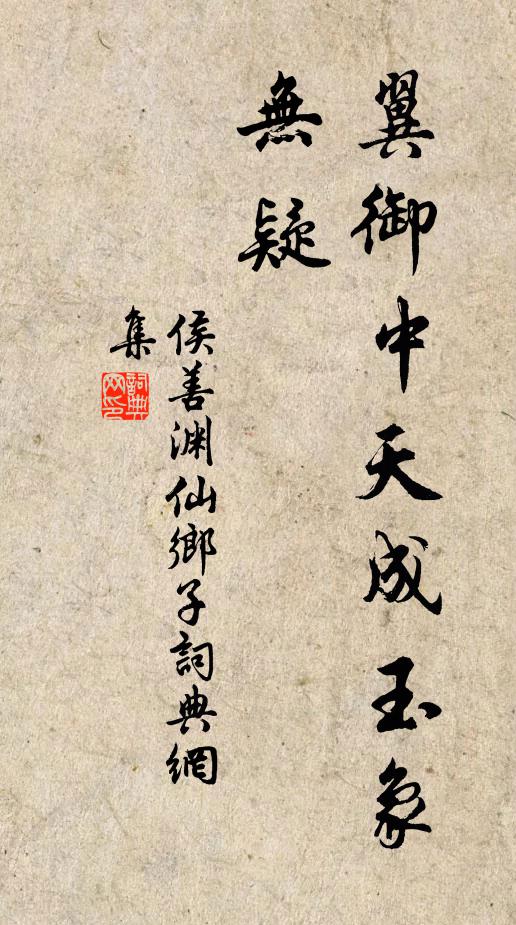 翼御中天成玉象
無疑
侯善渊仙鄉子詞典網
集
詞典
网印